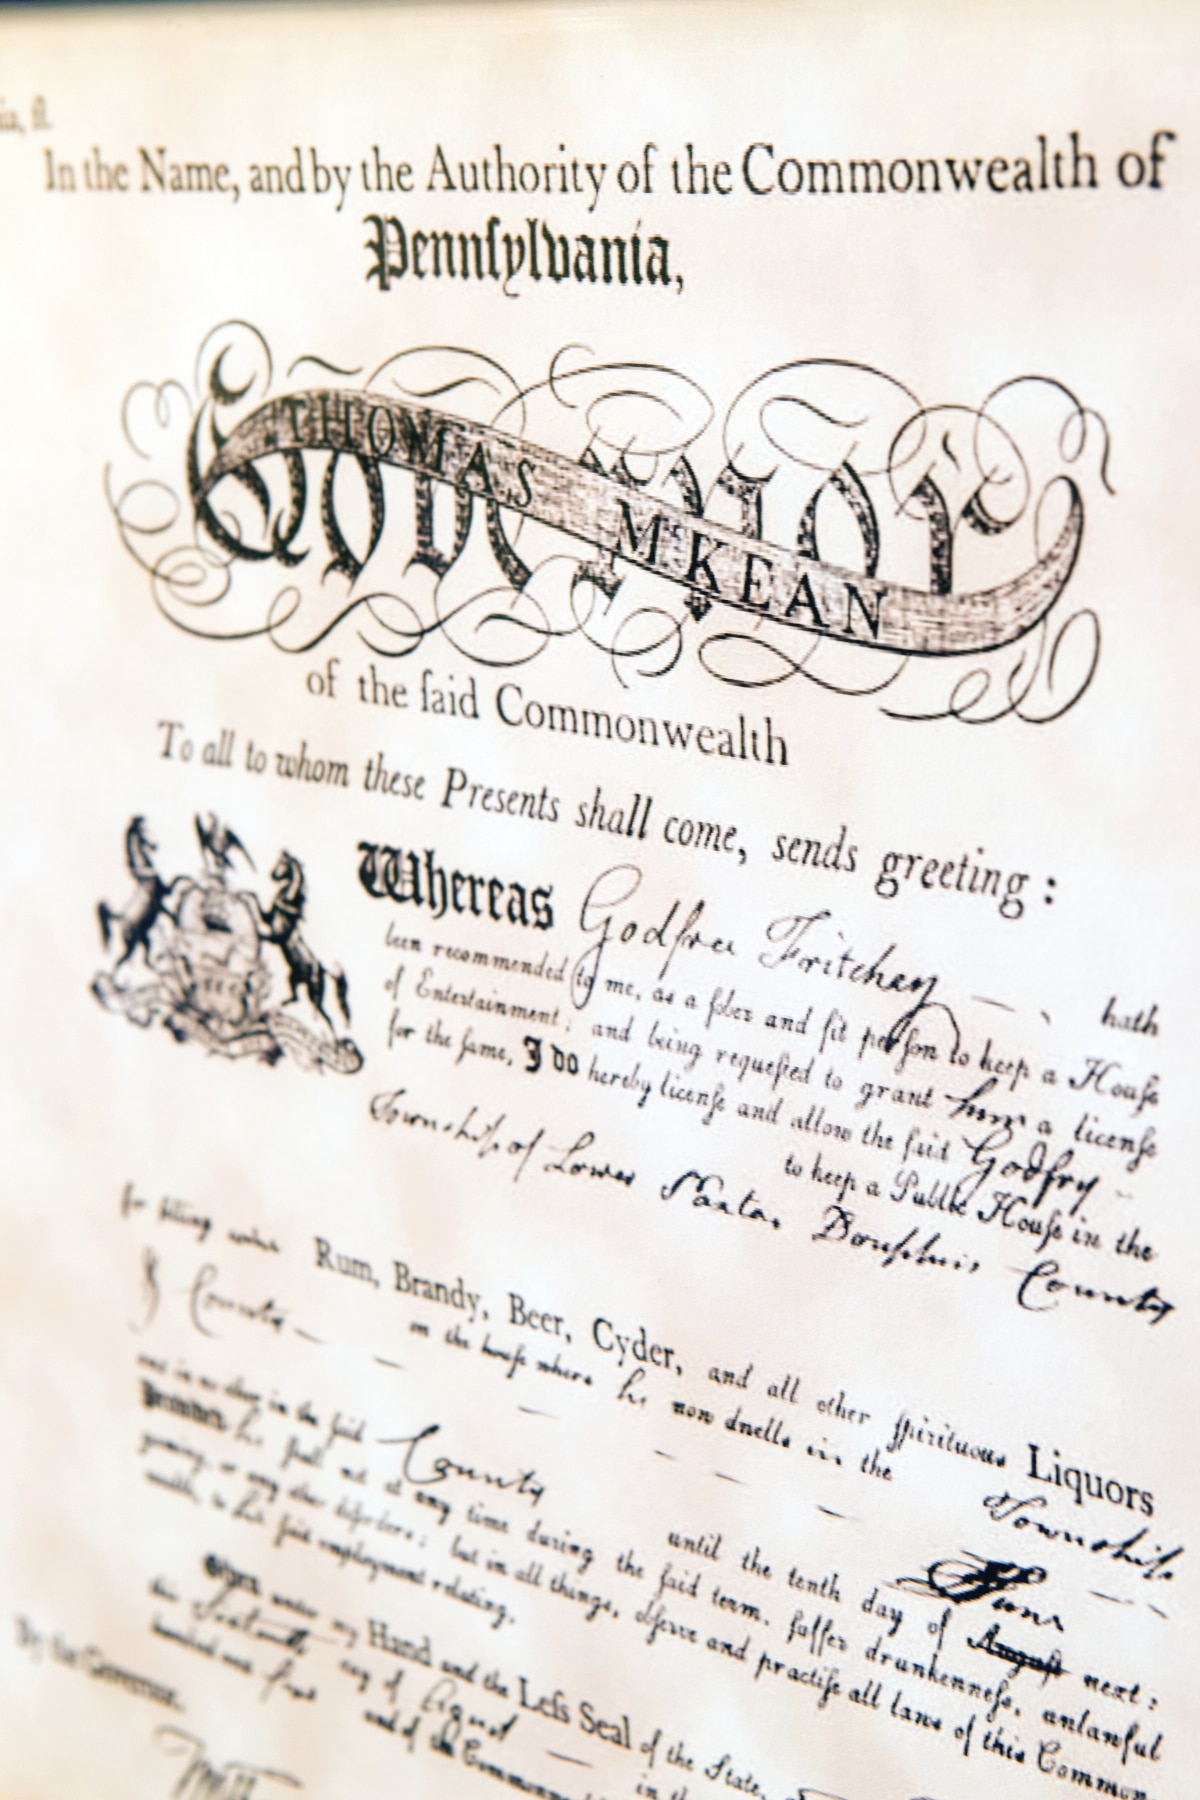 In the Name, and by the Authority of the Commonwealth of
Pennſylvania,
THOMAS MKEAN
Governor
of the ſaid Commonwealth
To all to whom these Presents shall come, sends greeting:
Whereas Godfrey Fritchey hath
been recommended to me, as a ſober and fit perſon to keep a Houſe
of Entertainment; and being requeſted to grant him a licenſe
for the ſame, I do hereby licenſe and allow the ſaid Godfry
to keep a Public Houſe in the
Township of Lower Paxton Dauphin County
for selling
Rum, Brandy, Beer, Cyder, and all other ſpirituous Liquors
in the houſe where he now dwells in the Township
County
and in no other in the ſaid County until the tenth day of June August next:
he ſhall not at any time during the ſaid term, ſuffer drunkenneſs, unlawful
gaming, or any other diſorders; but in all things, obſerve and practiſe all laws of this Common
wealth, to his ſaid employment relating.
Given under my Hand and the Leſs Seal of the State,
day of
and of the
By the Governor.